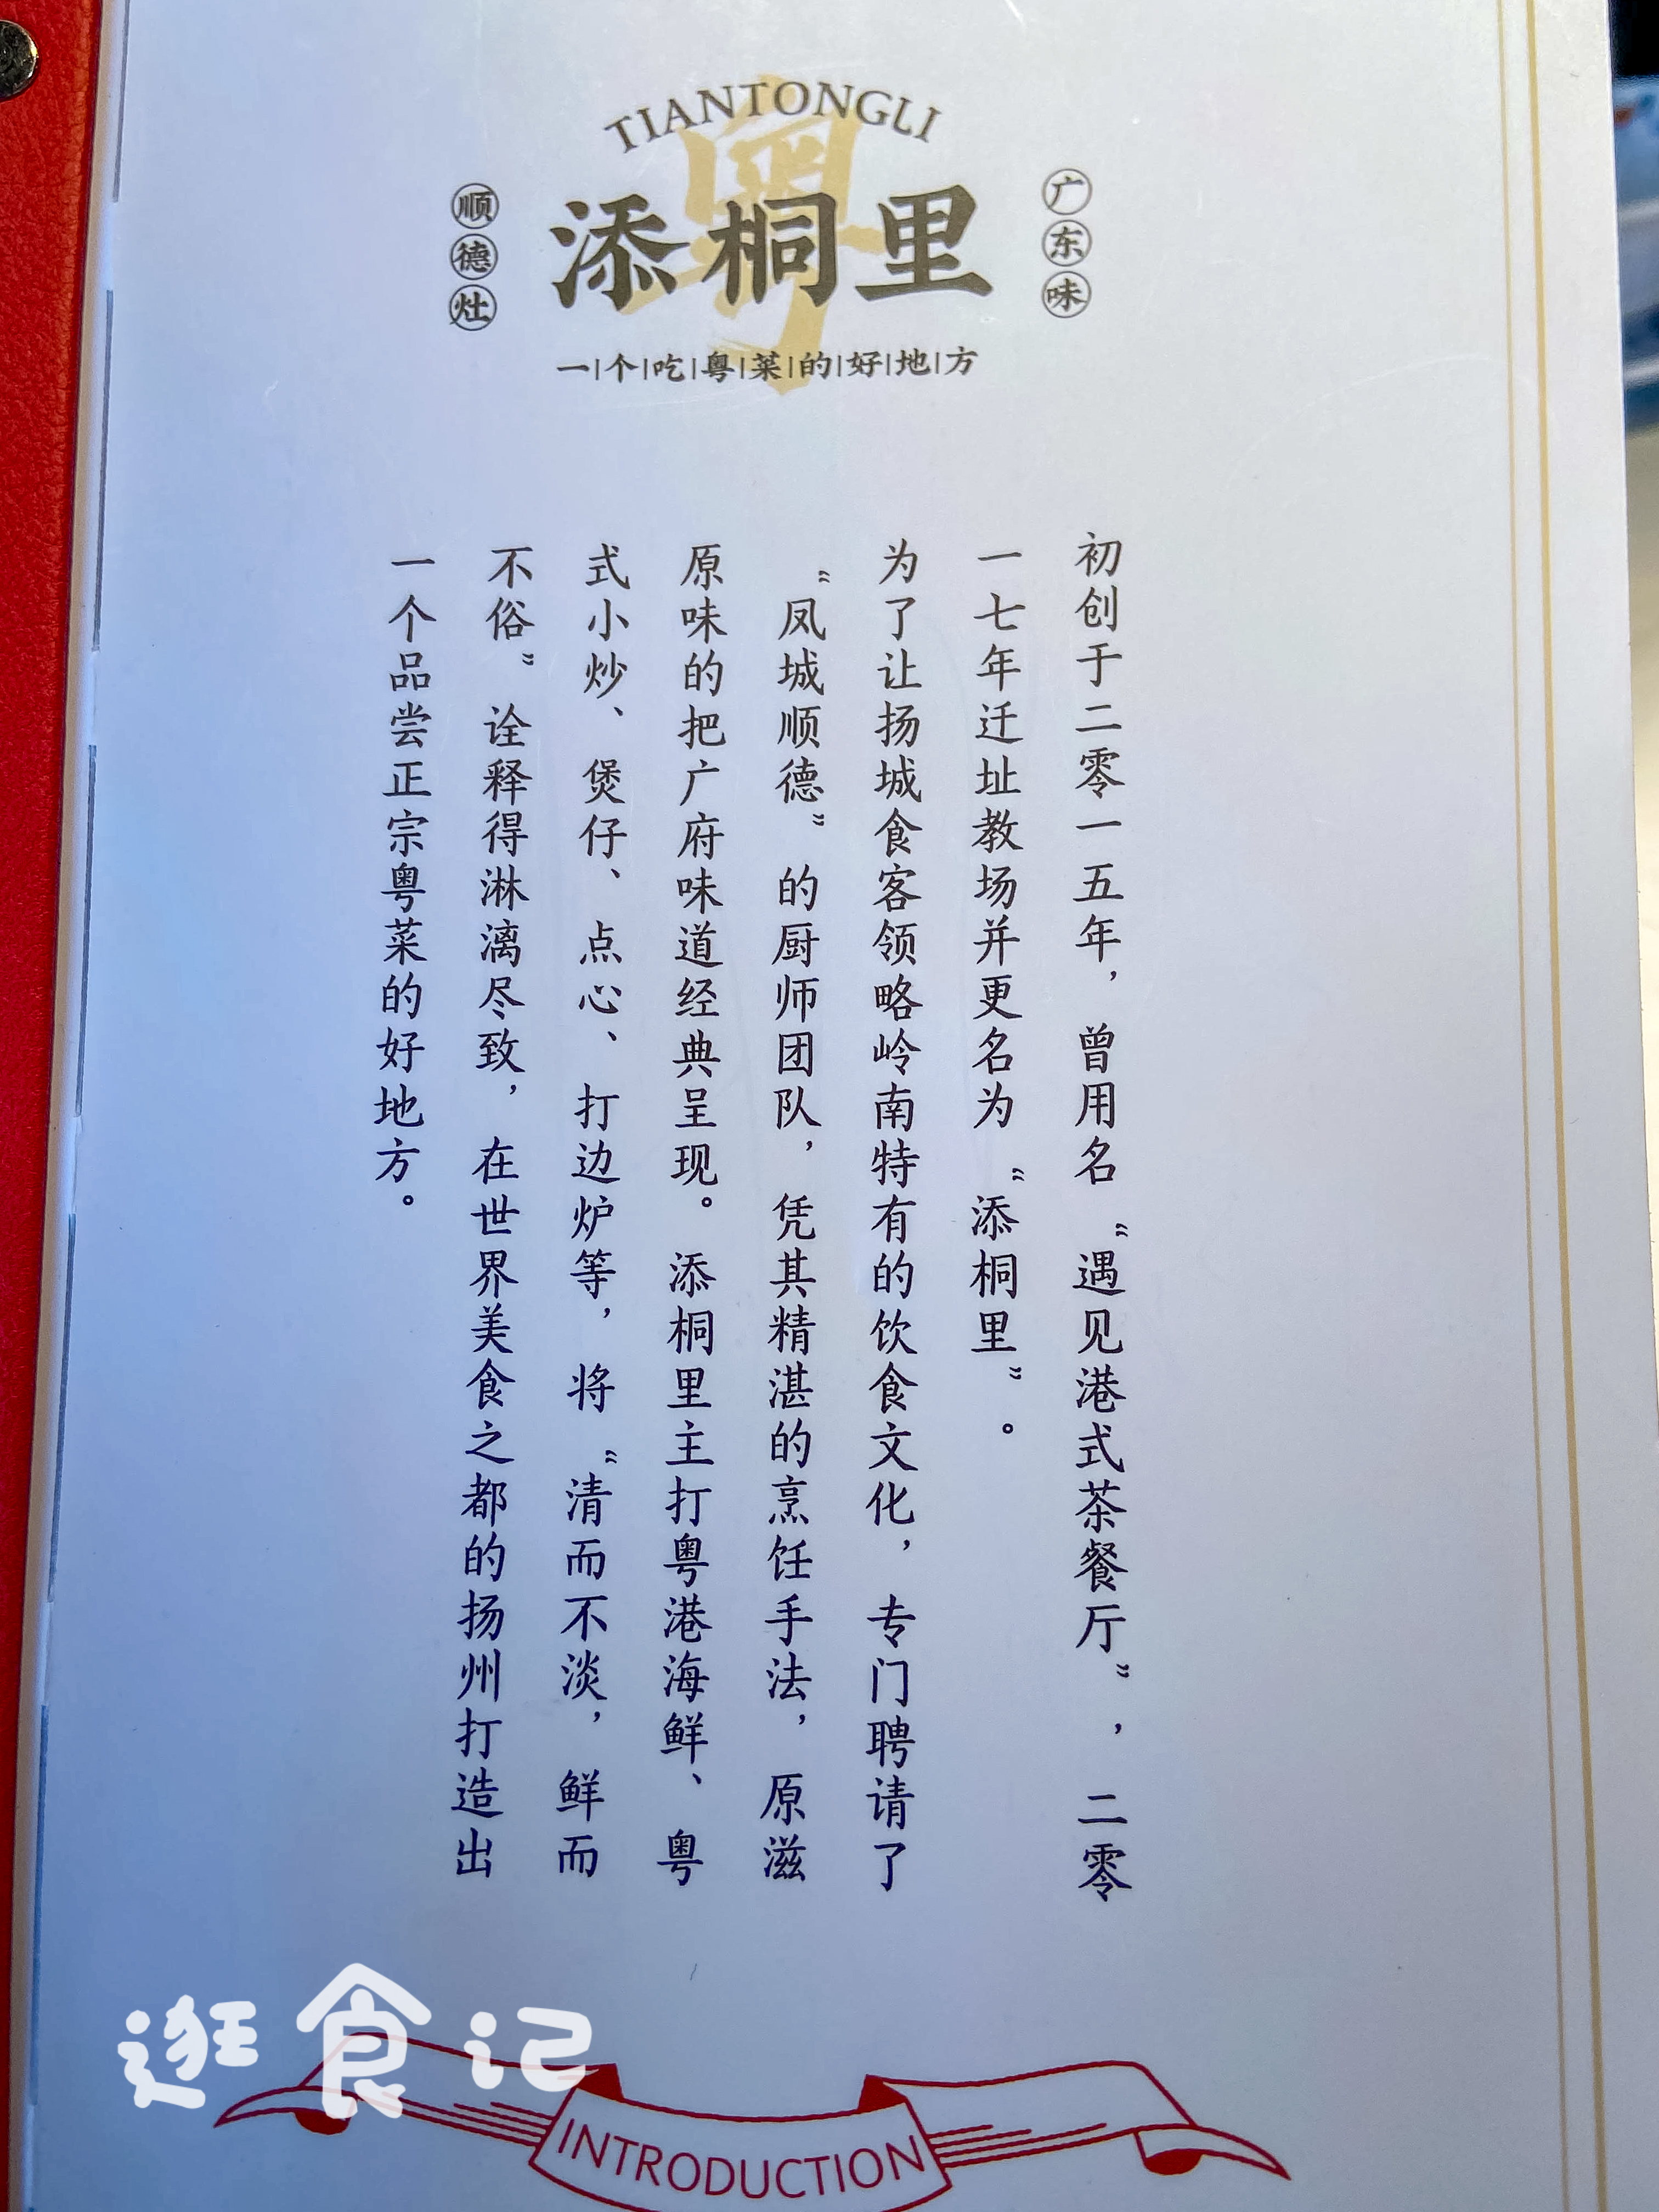 TIANTONGLI
粤
顺德灶
添桐里
广东味
一|个|吃|粤|菜|的|好|地|方
初创于二零一五年，曾用名“遇见港式茶餐厅”，二零
一七年迁址教场并更名为“添桐里”。
为了让扬城食客领略岭南特有的饮食文化，专门聘请了
“凤城顺德”的厨师团队，凭其精湛的烹饪手法，原滋
原味的把广府味道经典呈现。添桐里主打粤港海鲜、粤
式小炒、煲仔、点心、打边炉等，将“清而不淡，鲜而
不俗”诠释得淋漓尽致，在世界美食之都的扬州打造出
一个品尝正宗粤菜的好地方。
逛食记
INTRODUCTION